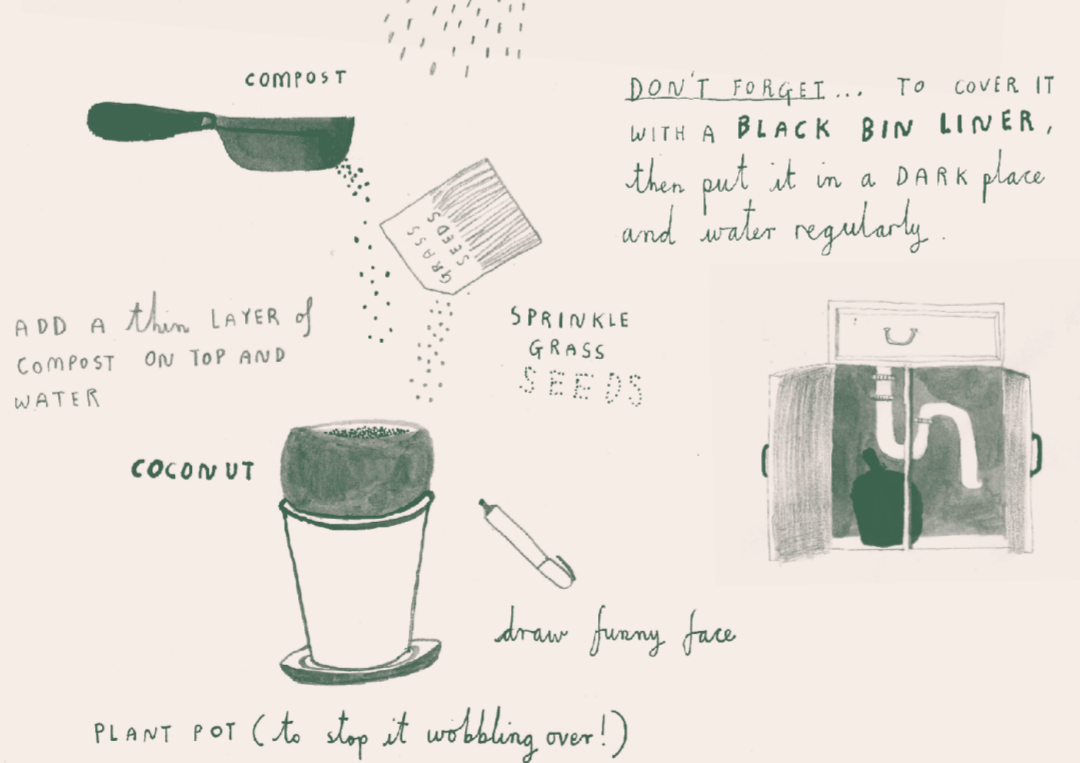 COMPOST
DON'T FORGET... TO COVER IT
WITH A BLACK BIN LINER,
then put it in a DARK place
and water regularly.
GRASS
SEEDS
ADD A thin LAYER of
COMPOST ON TOP AND
WATER
SPRINKLE
GRASS
SEEDS
COCONUT
draw funny face
PLANT POT (to stop it wobbling over!)